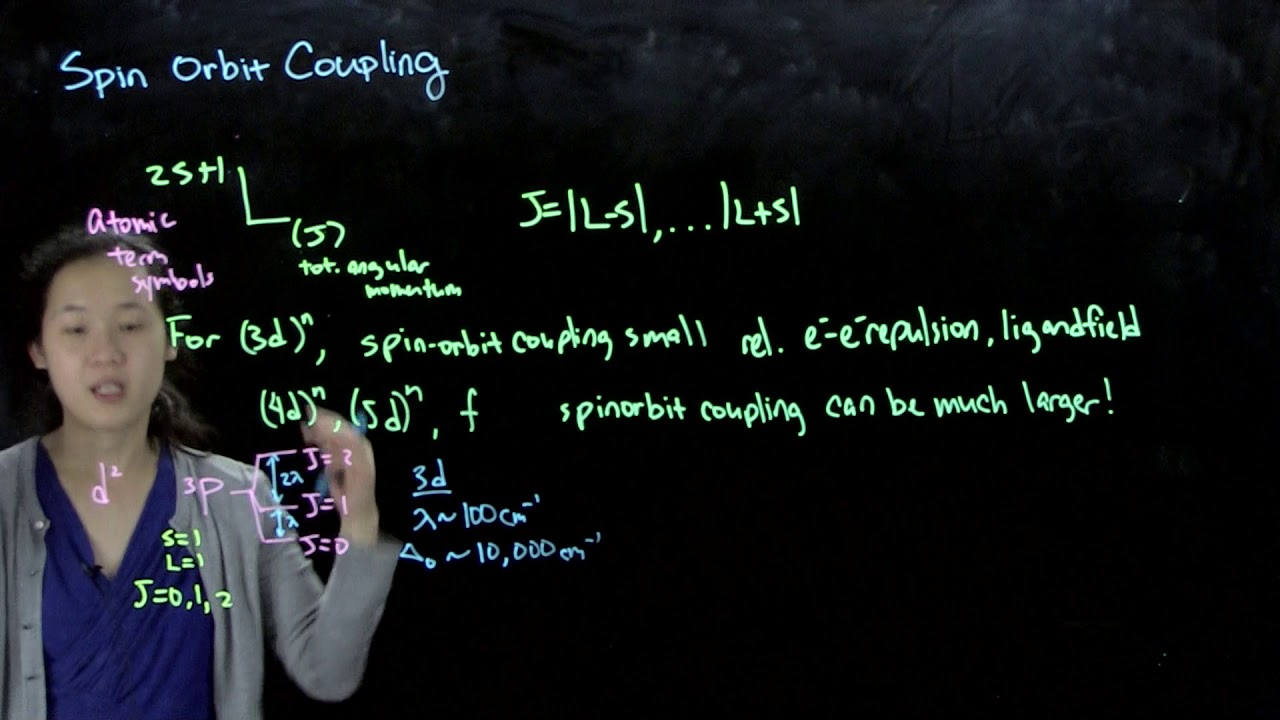 Spin Orbit Coupling
2S+1
L
(J)
atomic
term
symbols
tot. angular
momentum
J=|L-S|,...|L+S|
For (3d)ⁿ, spin-orbit coupling small rel. e⁻-e⁻ repulsion, ligand field
(4d)ⁿ, (5d)ⁿ, f spin orbit coupling can be much larger!
d² ³P
J=2
2λ
J=1
λ
J=0
S=1
L=1
J=0,1,2
3d
λ~100cm⁻¹
Δ₀~10,000cm⁻¹